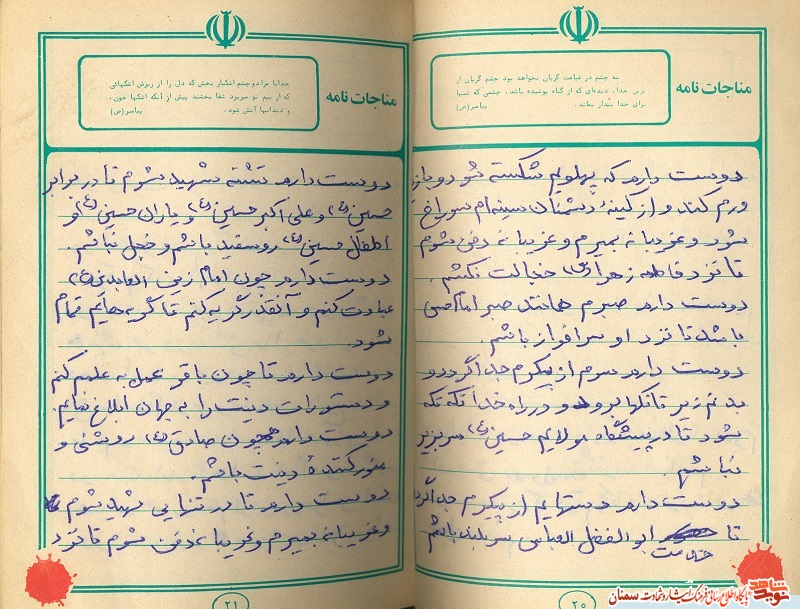 مناجات نامه
سه چشم در قیامت گریان نخواهد بود چشم گریان از
ترس خدا، دیده‌ای که از گناه پوشیده باشد، چشمی که شبها
برای خدا بیدار بماند.
پیامبر (ص)
دوست دارم که پهلویم شکسته شود و بازویم
ورم کند و از کینه دشمنان سینه‌ام سوراخ
شود و غریبانه بمیرم و غریبانه دفن شوم
تا نزد فاطمه زهرا (س) خجالت نکشم.
دوست دارم صبرم همانند صبر امام حسن
باشد تا نزد او سرافراز باشم.
دوست دارم سرم از پیکرم جدا گردد و
بدنم زیر تانکها برود و در راه خدا تکه تکه
شود تا در پیشگاه مولایم حسین (ع) سربزیر
نباشم.
دوست دارم دستهایم از پیکرم جدا گردد
تا خدمت ابوالفضل العباس سربلند باشم
۲۰
مناجات نامه
خدایا مرا دو چشم اشکبار بخش که دل را از ریزش اشکهائی
که از بیم تو میریزد شفا بخشند پیش از آنکه اشکها خون،
و دندانها آتش شود.
پیامبر (ص)
دوست دارم تشنه شهید شوم تا در برابر
حسین (ع) و علی اکبر حسین (ع) و یاران حسین (ع) و
اطفال حسین (ع) روسفید باشم و خجل نباشم.
دوست دارم چون امام زین العابدین (ع)
عبادت کنم و آنقدر گریه کنم تا گریه‌هایم تمام
شود.
دوست دارم تا چون باقر عمل به علمم کنم
و دستورات دینت را به جهان ابلاغ نمایم.
دوست دارم همچون صادق (ع) روشنی و
منور کننده دینت باشم.
دوست دارم تا در تنهایی شهید شوم
و غریبانه بمیرم و غریبانه دفن شوم تا نزد
۲۱
نوید شاهد
پایگاه اطلاع رسانی فرهنگ ایثار و شهادت سمنان